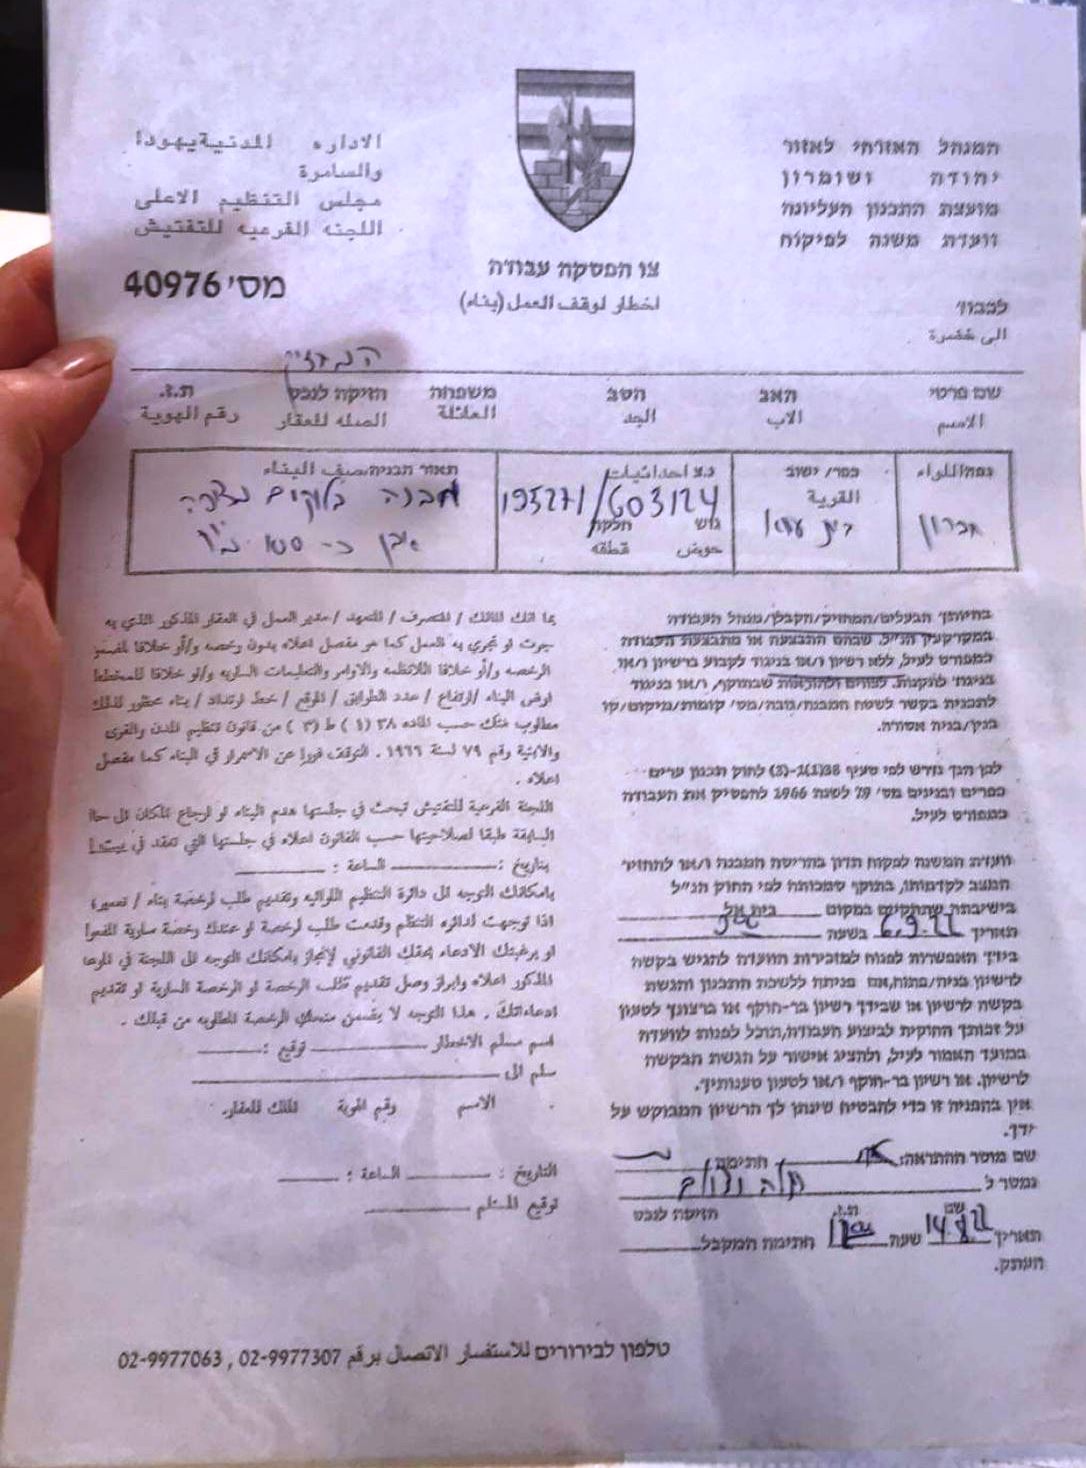 המנהל האזרחי לאזור
יהודה ושומרון
מועצת התכנון העליונה
וועדת משנה לפיקוח
الاداره المدنية يهودا
والسامرة
مجلس التنظيم الاعلى
اللجنه الفرعيه للتفتيش
צו הפסקת עבודה
اخطار لوقف العمل (بناء)
מס' 40976
לכבוד
الى حضرة
המחזיק
שם פרטי האב הסב משפחה הזיקה לנכס ת.ז.
الاسم الاب الجد العائلة الصله للعقار رقم الهوية
נפה اللواء
חברון
כפר/ ישוב
القرية
נ.צ احداثيات
195271/603124
גוש חלקה
حوض قطعه
תאור הבניה صيف البناء
מבנה בלוקים
בהיותך הבעלים/המחזיק/הקבלן/מנהל העבודה
במקרקעין הנ"ל, שבהם התבצעה או מתבצעת העבודה
כמפורט לעיל, ללא רשיון ו/או בניגוד לקבוע ברשיון ו/או
בניגוד לתקנות, לצווים ולהוראות שבתוקף, ו/או בניגוד
לתכנית בקשר לשטח המבנה/גובה/מס' קומות/מיקום/קו
בנין/בניה אסורה.
לכן הנך נדרש לפי סעיף 38(1)-(3) לחוק תכנון ערים
כפרים ובנינים מס' 79 לשנת 1966 להפסיק את העבודה
כמפורט לעיל.
וועדת המשנה לפקוח תדון בהריסת המבנה ו/או להחזיר
המצב לקדמותו, בתוקף סמכותה לפי החוק הנ"ל
בישיבתה שתתקיים במקום בית אל
תאריך 6.9.22 בשעה
בידך האפשרות לפנות למזכירות הוועדה להגיש בקשה
לרשיון בניה/פתוח, אם פניתה ללשכת התכנון והגשת
בקשה לרשיון או שבידך רשיון בר-תוקף או ברצונך לטעון
על זכותך החוקית לביצוע העבודה, תוכל לפנות לוועדה
במועד האמור לעיל, ולהציג אישור על הגשת הבקשה
לרשיון. או רשיון בר-תוקף ו/או לטעון טענותיך.
אין בהפניה זו כדי להבטיח שינתן לך הרשיון המבוקש על
ידך.
שם מוסר ההתראה: חתימה
נמסר ל
שם ת.ז. הזיקה לנכס
תאריך 14.8.22 שעה חתימת המקבל
העתק.
بما انك المالك / المتصرف / المتعهد / مدير العمل في العقار المذكور الذي به
جرت او تجري به العمل كما هو مفصل اعلاه بدون رخصه و/أو خلافا
الرخصه و/أو خلافا للانظمه والاوامر والتعليمات الساريه و/او خلافا للمخطط
لغرض البناء /ارتفاع / عدد الطوابق / الموقع / خط ارتداد / بناء محظور لذلك
مطلوب منك حسب الماده ٣٨ (١) ط (٣) من قانون تنظيم المدن والقرى
والابنية رقم ٧٩ لسنة ١٩٦٦ . التوقف فورا عن الاستمرار في البناء كما مفصل
اعلاه .
اللجنة الفرعية للتفتيش تبحث في جلستها هدم البناء او ارجاع المكان الى
السابقة طبقا لصلاحيتها حسب القانون اعلاه في جلستها التي تعقد في
بتاريخ : الساعة :
بامكانك التوجه الى دائرة التنظيم اللوائيه وتقديم طلب لرخصة بناء / تعمير؛
اذا توجهت لدائره التنظم وقدمت طلب لرخصة او عندك رخصة سارية المفعول
او برغبتك الادعاء بحقك القانوني لإنجاز بامكانك التوجه الى اللجنة في الموعد
المذكور اعلاه وابراز وصل تقديم طلب الرخصة او الرخصة السارية او تقديم
ادعاءاتك . هذا التوجه لا يضمن منحك الرخصة المطلوبه من قبلك .
اسم مسلم الاخطار توقيع :
سلم الى
الاسم رقم الهوية المالك للعقار.
التاريخ : الساعة :
توقيع المستلم
טלפון לבירורים للاستفسار الاتصال برقم 02-9977307 , 02-9977063